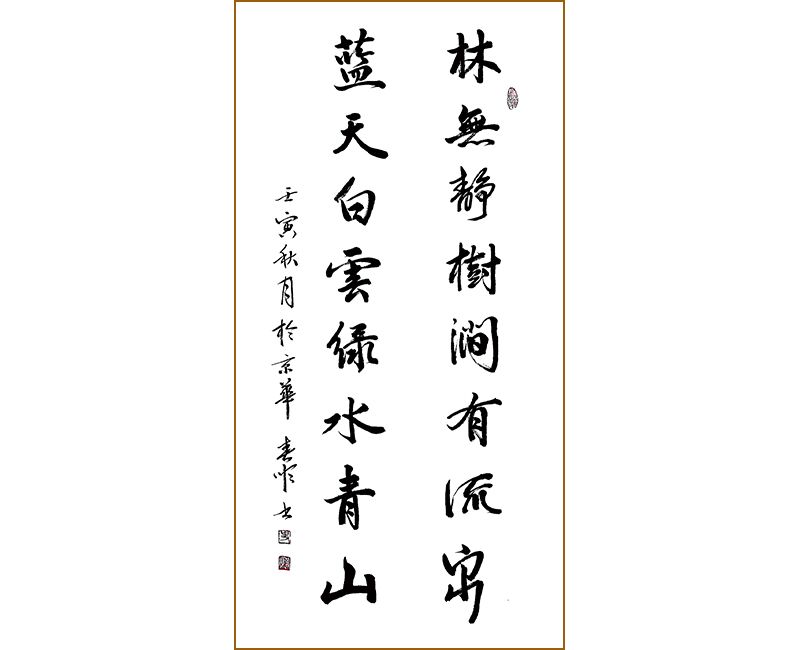 林無靜樹澗有流帘
藍天白雲绿水青山
壬寅秋月於京華 春 书